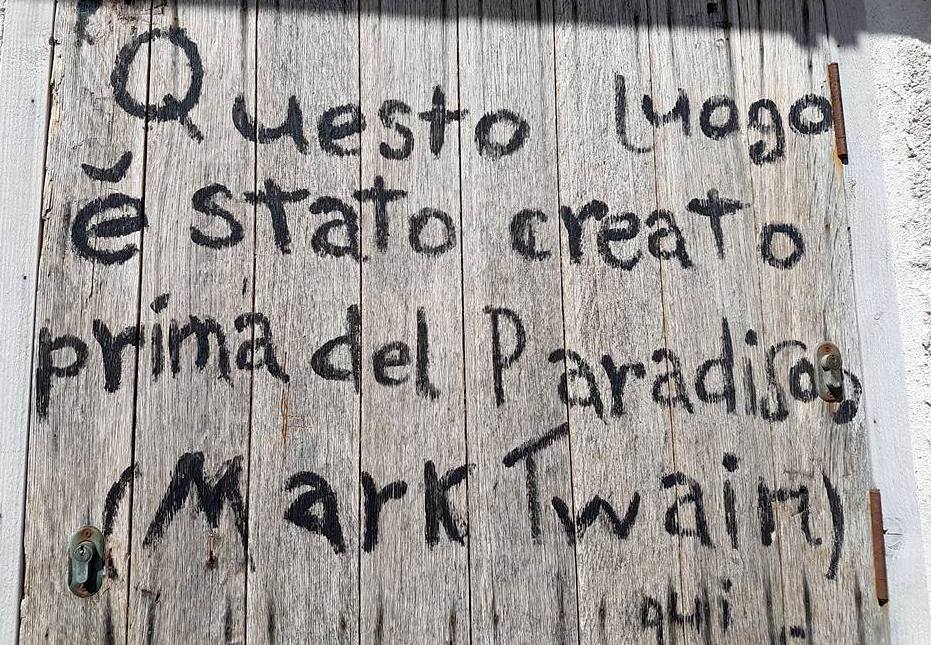 Questo luogo
è stato creato
prima del Paradiso,
(Mark Twain)
qui